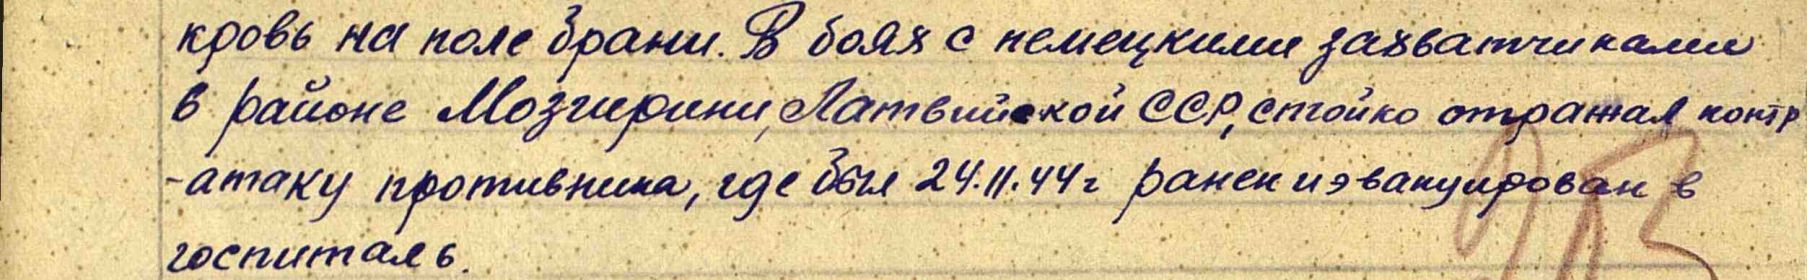 кровь на поле брани. В боях с немецкими захватчиками
в районе Мозгирини, Латвийской ССР, стойко отражал контр
-атаку противника, где был 24.11.44г ранен и эвакуирован в
госпиталь.